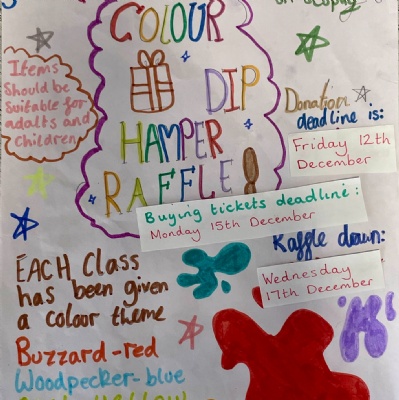 COLOUR
DIP
HAMPER
RAFFLE!
Items
Should be
Suitable for
adults and
Children
Donation
deadline is:
Friday 12th
December
Buying tickets deadline:
Monday 15th December
Raffle drawn:
Wednesday
17th December
EACH Class
has been given
a colour theme
Buzzard-red
Woodpecker-blue